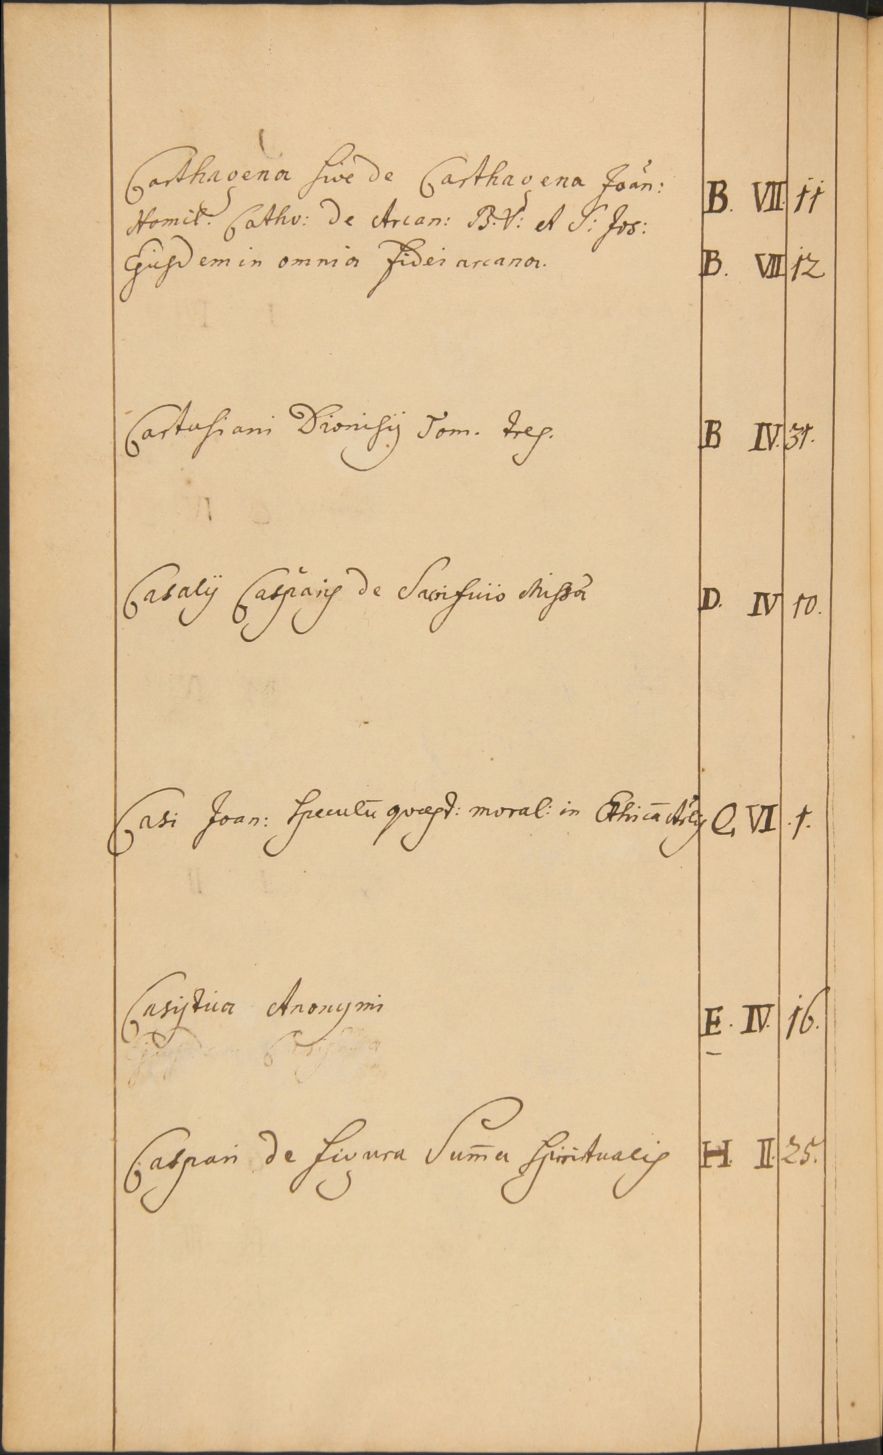 Carthagena sive de Carthagena Joan: B. VII 11
Homil: Catho: de Arcan: B: V: et S: Jos:
Ejusdem in omnia fidei arcana. B. VII 12
Cartusiani Dionisij Tom. tres. B IV. 31.
Casalij Casparis de Sacrificio Missæ D. IV 10.
Casi Joan: Speculū quæst: moral: in Ethicā Arlis Q VI .1.
Casistica Anonymi E. IV. 16.
Caspari de figura Sum̄a spiritualis H. II. 25.